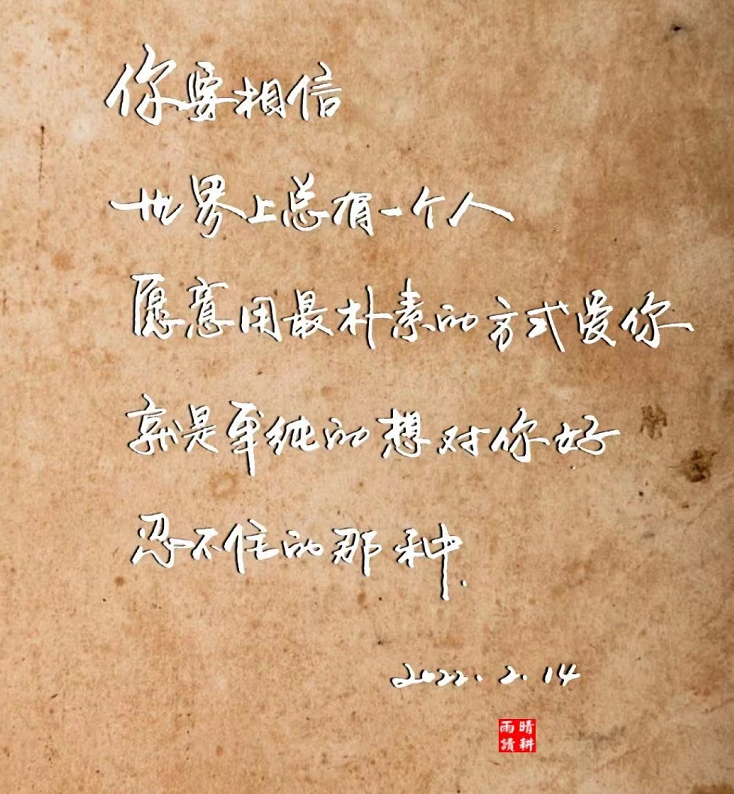 你要相信
世界上总有一个人
愿意用最朴素的方式爱你
就是单纯的想对你好
忍不住的那种.
2022.2.14
晴耕
雨讀